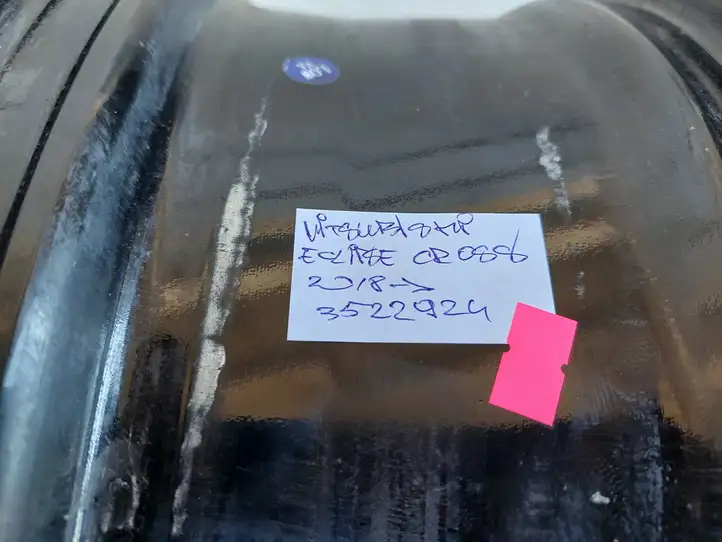 MITSUBISHI
ECLIPSE CROSS
2018→
3522924